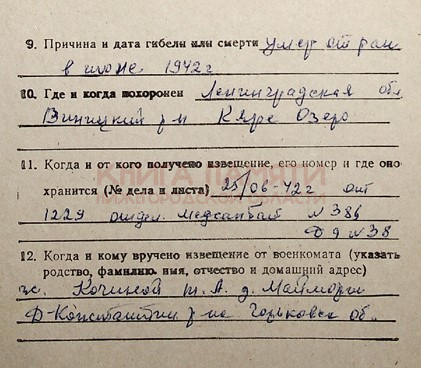 9. Причина и дата гибели или смерти умер от ран
в июне 1942 г
10. Где и когда похоронен Ленинградская обл
Винницкий р-н Кяре Озеро
11. Когда и от кого получено извещение, его номер и где оно
хранится (№ дела и листа) 25/06-42г от
1229 отдел. Медсанбат N 386
Д 9 N 38
12. Когда и кому вручено извещение от военкомата (указать
родство, фамилию, имя, отчество и домашний адрес)
Кочиной т. А. д. Майморы
Д-Константин р-на Горьковск об.
КНИГА ПАМЯТИ
НИЖЕГОРОДСКОЙ ОБЛАСТИ